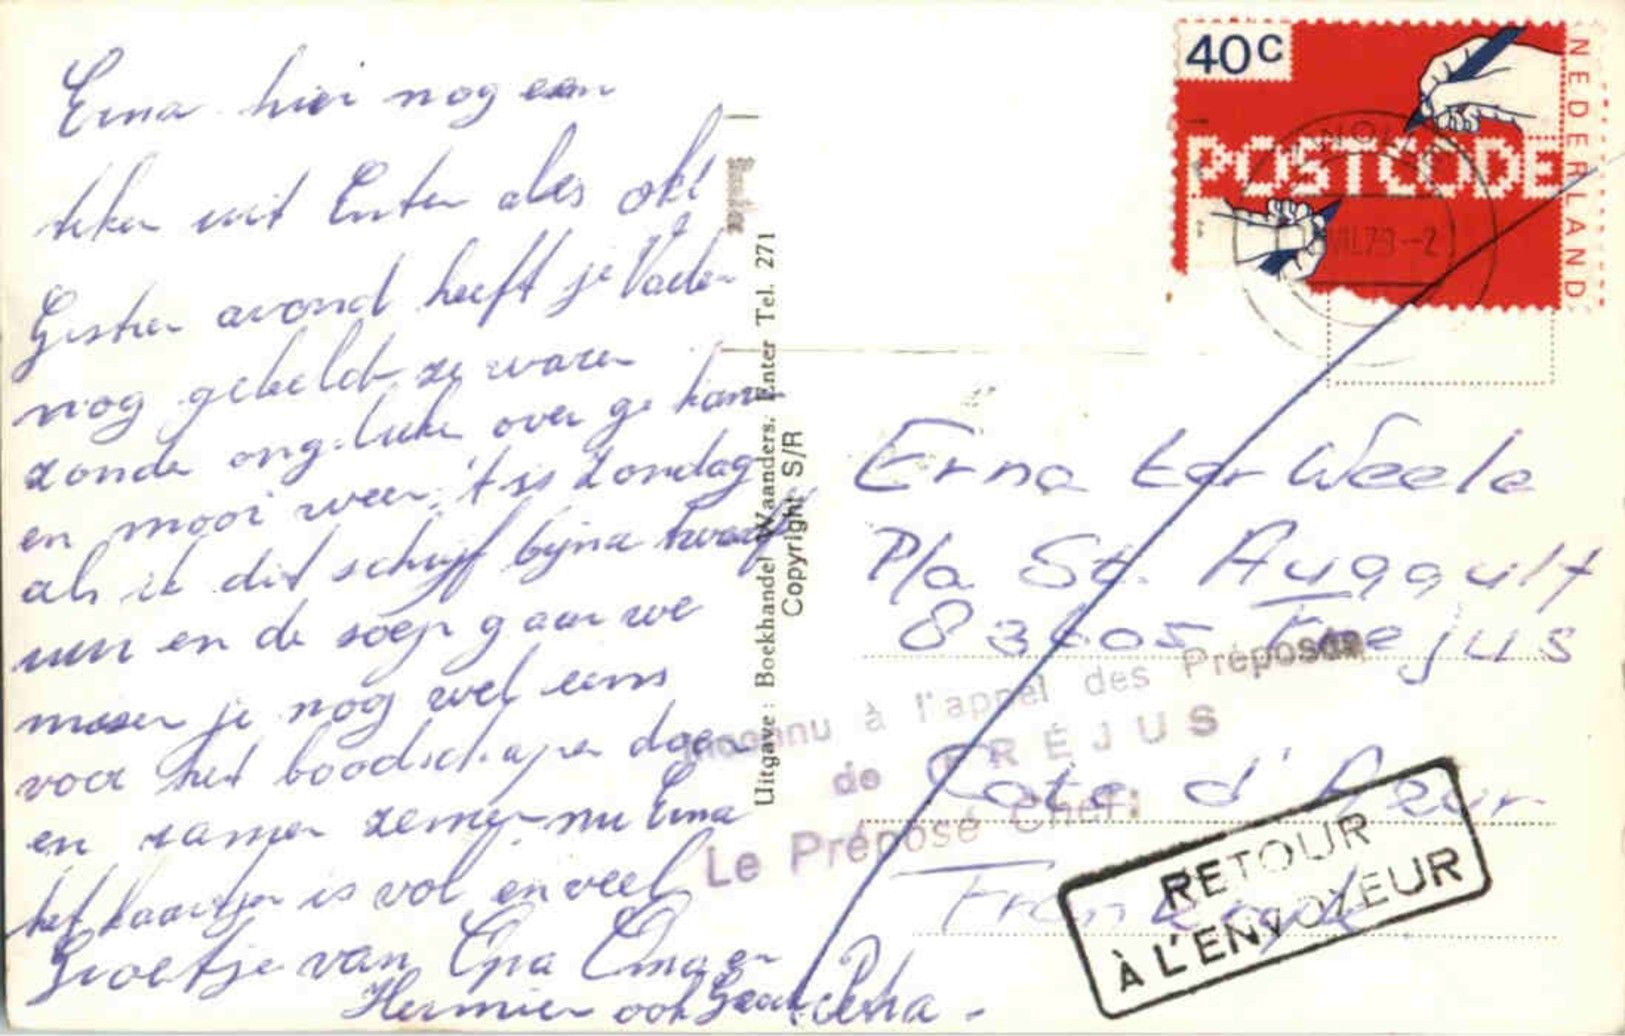 Erna hier nog een
teken uit Enter ales oké
Gister avond heeft je Vader
nog gebeld ze waren
zonder ongelukke over ge kome
en mooi weer, 't is Zondag
als ik dit schrijf bijna twaalf
uur en de soep gaar we
je nog wel eens
voor het boodschapen doen
en samen nu Erna
het kaartje is vol en veel
Groetje van Opa Oma en
Hermien ook Petra -
Uitgave: Boekhandel Waanders, Enter Tel. 271
Copyright S/R
40c
POSTCODE
NEDERLAND
VIII.79-2
Erna ter Weele
P/a St. Auggulf
83605 Frejus
Cote d'Azur
Frankrijk
Inconnu à l'appel des Préposés
de FRÉJUS
Le Préposé Chef:
RETOUR
À L'ENVOYEUR